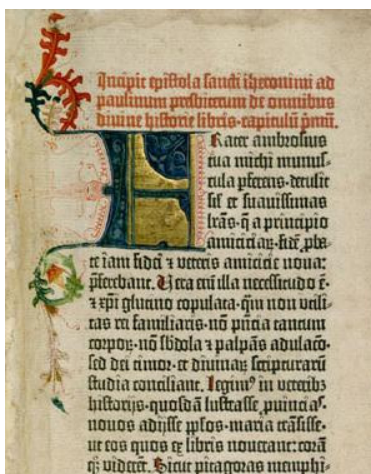 Incipit epistola sancti iheronimi ad
paulinum presbiterum de omnibus
divine historie libris·capitulũ pmũ.
Frater ambrosius
tua michi munus-
cula pferens·detulit
sił et suavissimas
lrãs·q̃ a principio
amiciciaꝝ·fidẽ pba-
te iam fidei ⁊ veteris amicicie nova:
pferebant. Vera eñ illa necessitudo ẽ·
⁊ xpi glutino copulata·qm̃ non utili-
tas rei familiaris·nõ pñcia tantum
corporꝫ·nõ sbdola ⁊ palpãs adulaco·
sed dei timor·et divinaꝝ scripturarũ
studia conciliant. Legimꝰ in veteribꝫ
historijs·quosdã lustrasse ꝓuincias·
novos adijsse pplos·maria trãsisse·
ut eos quos ex libris noverant:corã
q̃ꝫ viderẽt. Sicut pitagoras memphi-